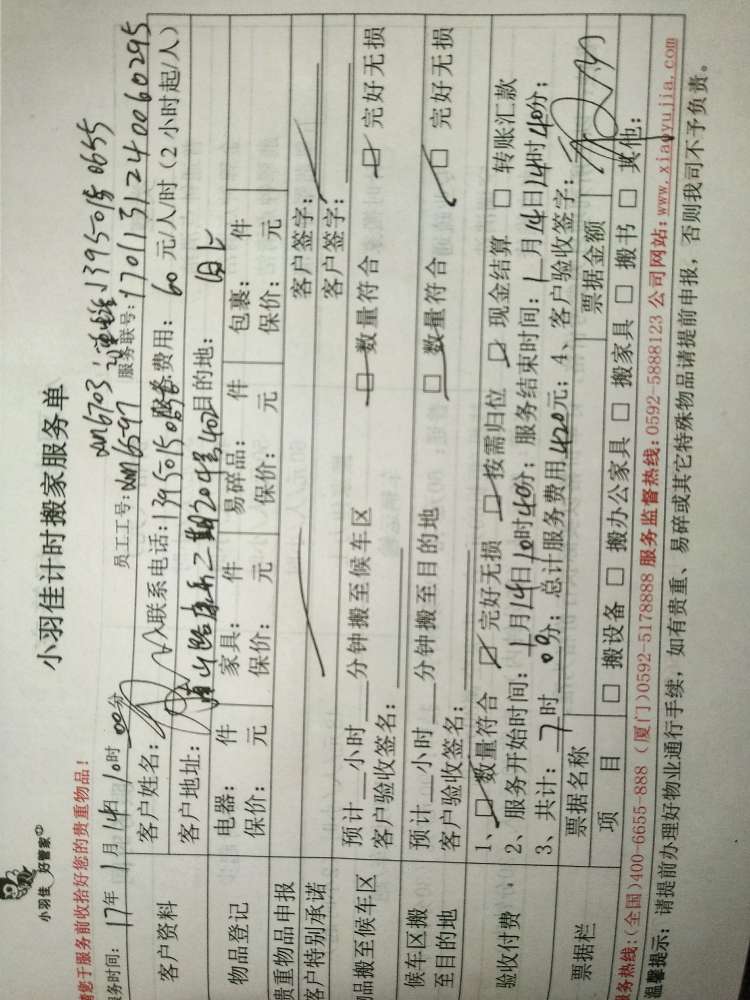 小羽佳 好管家
小羽佳计时搬家服务单
请您于服务前收拾好您的贵重物品!
员工工号:
13950150655
服务时间: 17年 1月14日10时00分
服务联号: 17011312400060295
客户资料
客户姓名:
联系电话: 1395015
费用: 60 元/人/时 (2小时起/人)
客户地址:
二期204号402
目的地: 自上
物品登记
电器: 件 家具: 件 易碎品: 件 包裹: 件
保价: 元 保价: 元 保价: 元 保价: 元
贵重物品申报
客户签字:
客户特别承诺
客户签字:
物品搬至候车区
预计 小时 分钟搬至候车区 □ 数量符合 □ 完好无损
客户验收签名:
候车区搬至目的地
预计 小时 分钟搬至目的地 □ 数量符合 □ 完好无损
客户验收签名:
验收付费
1、□ 数量符合 □ 完好无损 □ 按需归位 □ 现金结算 □ 转账汇款
2、服务开始时间: 1月14日10时40分; 服务结束时间: 1月14日14时40分;
3、共计: 7时00分; 总计服务费用420元; 4、客户验收签字:
票据栏
票据名称 票据金额
项目 □ 搬设备 □ 搬办公家具 □ 搬家具 □ 搬书 □ 其他:
服务热线: (全国)400-6655-888 (厦门)0592-5178888 服务监督热线: 0592-5888123 公司网站: www.xiaoyujia.com
温馨提示: 请提前办理好物业通行手续, 如有贵重、易碎或其它特殊物品请提前申报, 否则我司不予负责。